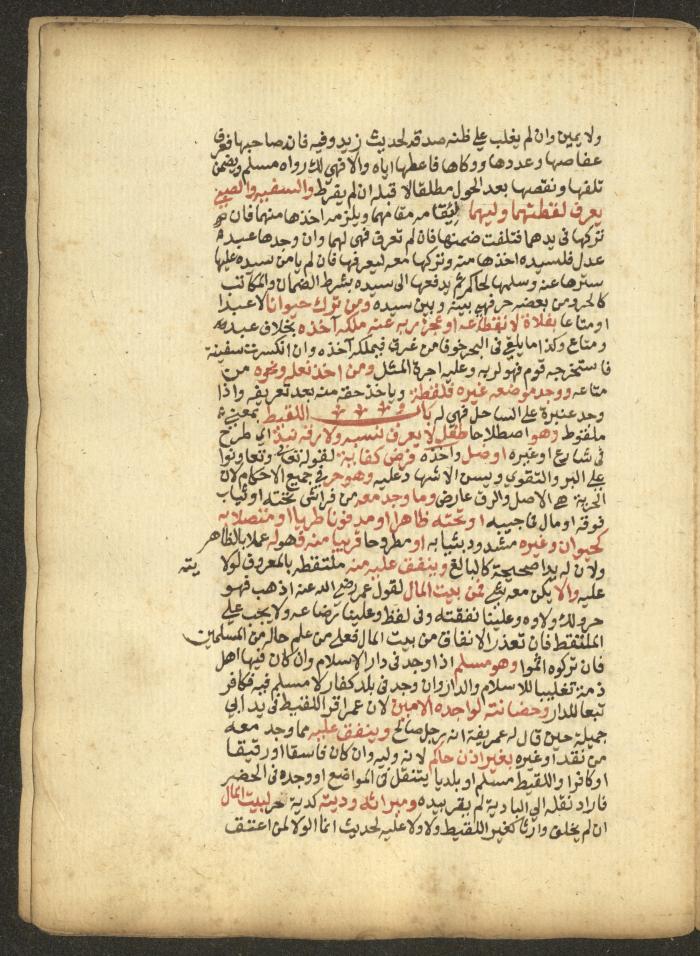 ولا يمين وان لم يغلب على ظنه صدقه لحديث زيد وفيه فان صاحبها فعرف
عفاصها وعددها ووكاها فاعطها اياه والا فهي لك رواه مسلم ويضمن
تلفها ونقصها بعد الحول مطلقا لا قبله ان لم يفرط والسفيه والصبي
يعرف لقطتهما وليهما لقيامه مقامهما ويلزمه اخذها منهما فان
تركها في يدها فتلفت ضمنها فان لم تعرف فهي لهما وان وجدها عبد
عدل فلسيده اخذها منه وتركها معه ليعرفها فان لم يامن سيده عليها
سترها عنه وسلمها لحاكم ثم يدفعها الى سيده بشرط الضمان والمكاتب
كالحر ومن بعضه حر فهي بينه وبين سيده ومن ترك حيوانا لا عبدا
او متاعا بفلاة لانقطاعه او عجز ربه عنه ملكه آخذه بخلاف عبد
ومتاع وكذا ما يلقى في البحر خوفا من غرق فيملكه آخذه وان انكسرت سفينة
فاستخرجه قوم فهو لربه وعليه اجرة المثل ومن اخذ نعل ونحوه من
متاعه ووجد موضعه غيره فلقطة وياخذ حقه منه بعد تعريفه واذا
وجد عنبرة على الساحل فهي له باب اللقيط بمعنى
ملقوط وهو اصطلاحا طفل لا يعرف نسبه ولا رقه نبذ اي طرح
في شارع او غيره او ضل واخذه فرض كفاية لقوله تعالى وتعاونوا
على البر والتقوى ويسن الاشهاد عليه وهو حر في جميع الاحكام لان
الحرية هي الاصل والرق عارض وما وجد معه من فراش تحته او ثياب
فوقه او مال في جيبه او تحته ظاهرا او مدفونا طريا او متصلا به
كحيوان وغيره مشدود بثيابه او مطروحا قريبا منه فهو له عملا بالظاهر
ولان له يدا صحيحة كالبالغ وينفق عليه منه ملتقطه بالمعروف لولايته
عليه والا يكن معه شي فمن بيت المال لقول عمر رضي الله عنه اذهب فهو
حر ولك ولاوه وعلينا نفقته وفي لفظ وعلينا رضاعه ولا يجب على
الملتقط فان تعذر الانفاق من بيت المال فعلى من علم حاله من المسلمين
فان تركوه اثموا وهو مسلم اذا وجد في دار الاسلام وان كان فيها اهل
ذمة تغليبا للاسلام والدار وان وجد في بلد كفار لا مسلم فيه فكافر
تبعا للدار وحضانته لواجده الامين لان عمر اقر اللقيط في يد ابي
جميلة حين قال له عريفه انه رجل صالح وينفق عليه مما وجد معه
من نقد او غيره بغير اذن حاكم لانه وليه وان كان فاسقا او رقيقا
او كافرا واللقيط مسلم او بلديا يتنقل في المواضع او وجده في الحضر
فاراد نقله الى البادية لم يقر بيده وميراثه وديته كدية حر لبيت المال
ان لم يخلف وارثا كغير اللقيط ولا ولا عليه لحديث انما الولا لمن اعتق